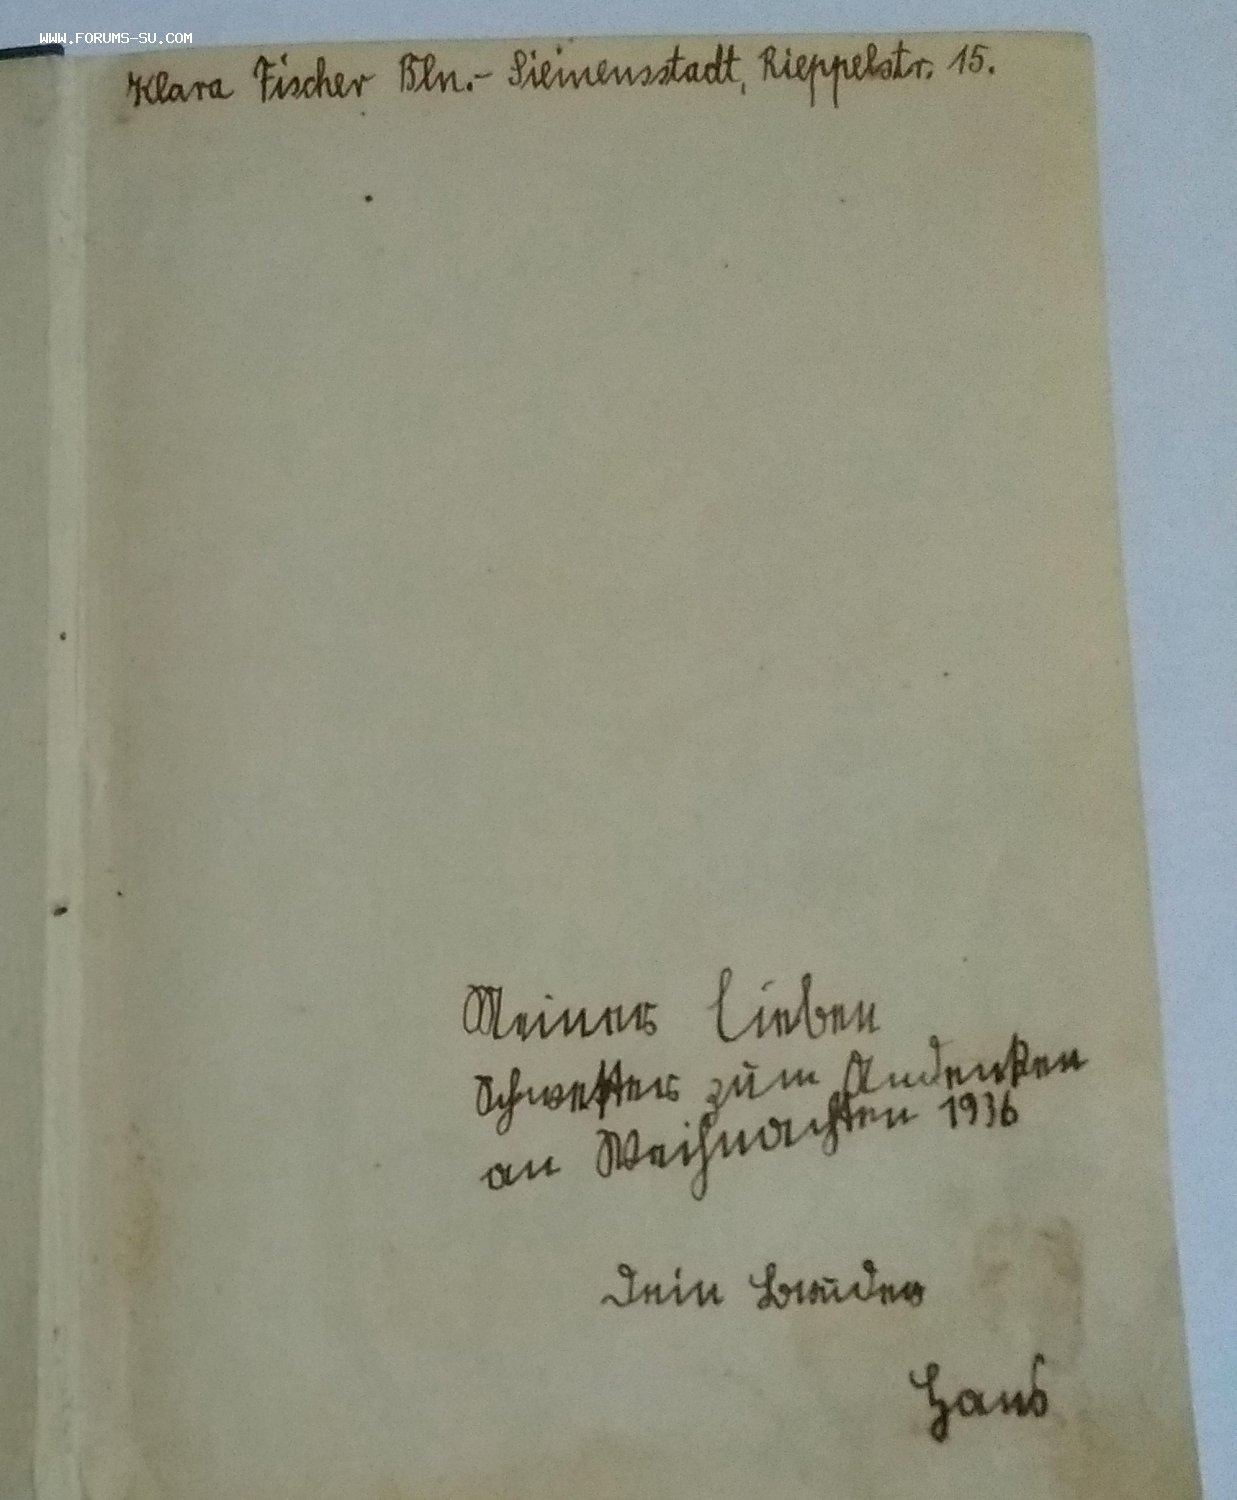 WWW.FORUMS-SU.COM
Klara Fischer Bln.- Siemensstadt, Rieppelstr. 15.
Meiner lieben
Schwester zum Andenken
an Weihnachten 1936
Dein Bruder
Hans